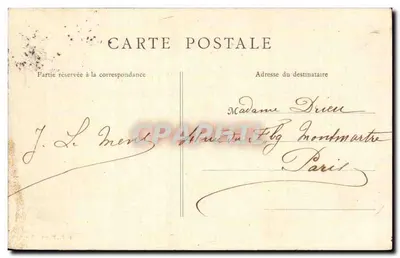 CARTE POSTALE
Partie réservée à la correspondance
Adresse du destinataire
J. Le
Madame Drieu
Fbg Montmartre
Paris
CPARAMA